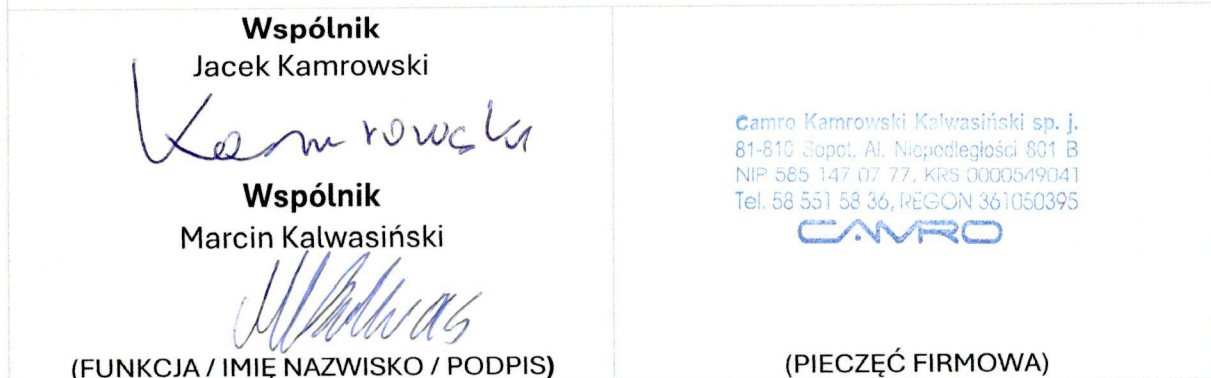 Wspólnik
Jacek Kamrowski
Kamrowski
Wspólnik
Marcin Kalwasiński
(FUNKCJA / IMIĘ NAZWISKO / PODPIS)
Camro Kamrowski Kalwasiński sp. j.
81-810 Sopot, Al. Niepodległości 801 B
NIP 585 147 07 77, KRS 0000549041
Tel. 58 551 58 36, REGON 361050395
CAMRO
(PIECZĘĆ FIRMOWA)